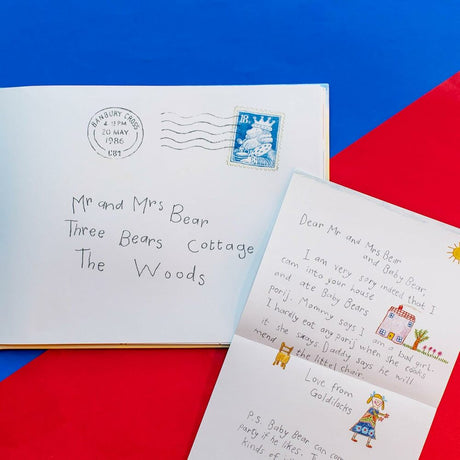 BANBURY CROSS
4 15PM
20 MAY
1986
CB1
18p
Mr and Mrs Bear
Three Bears Cottage
The Woods
Dear Mr and Mrs Bear
and Baby Bear,
I am very sory indeed that I
cam into your house
and ate Baby Bears
porij. Mommy says I am a bad girl.
I hardly eat any porij when she cooks
it she says. Daddy says he will
mend the littel chair.
Love from
Goldilocks
P.S. Baby Bear can com
party if he likes.
kinds of